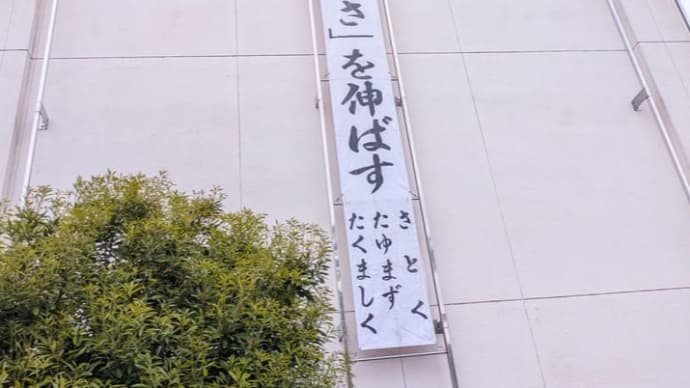 さ」を伸ばす
さとく
たゆまず
たくましく